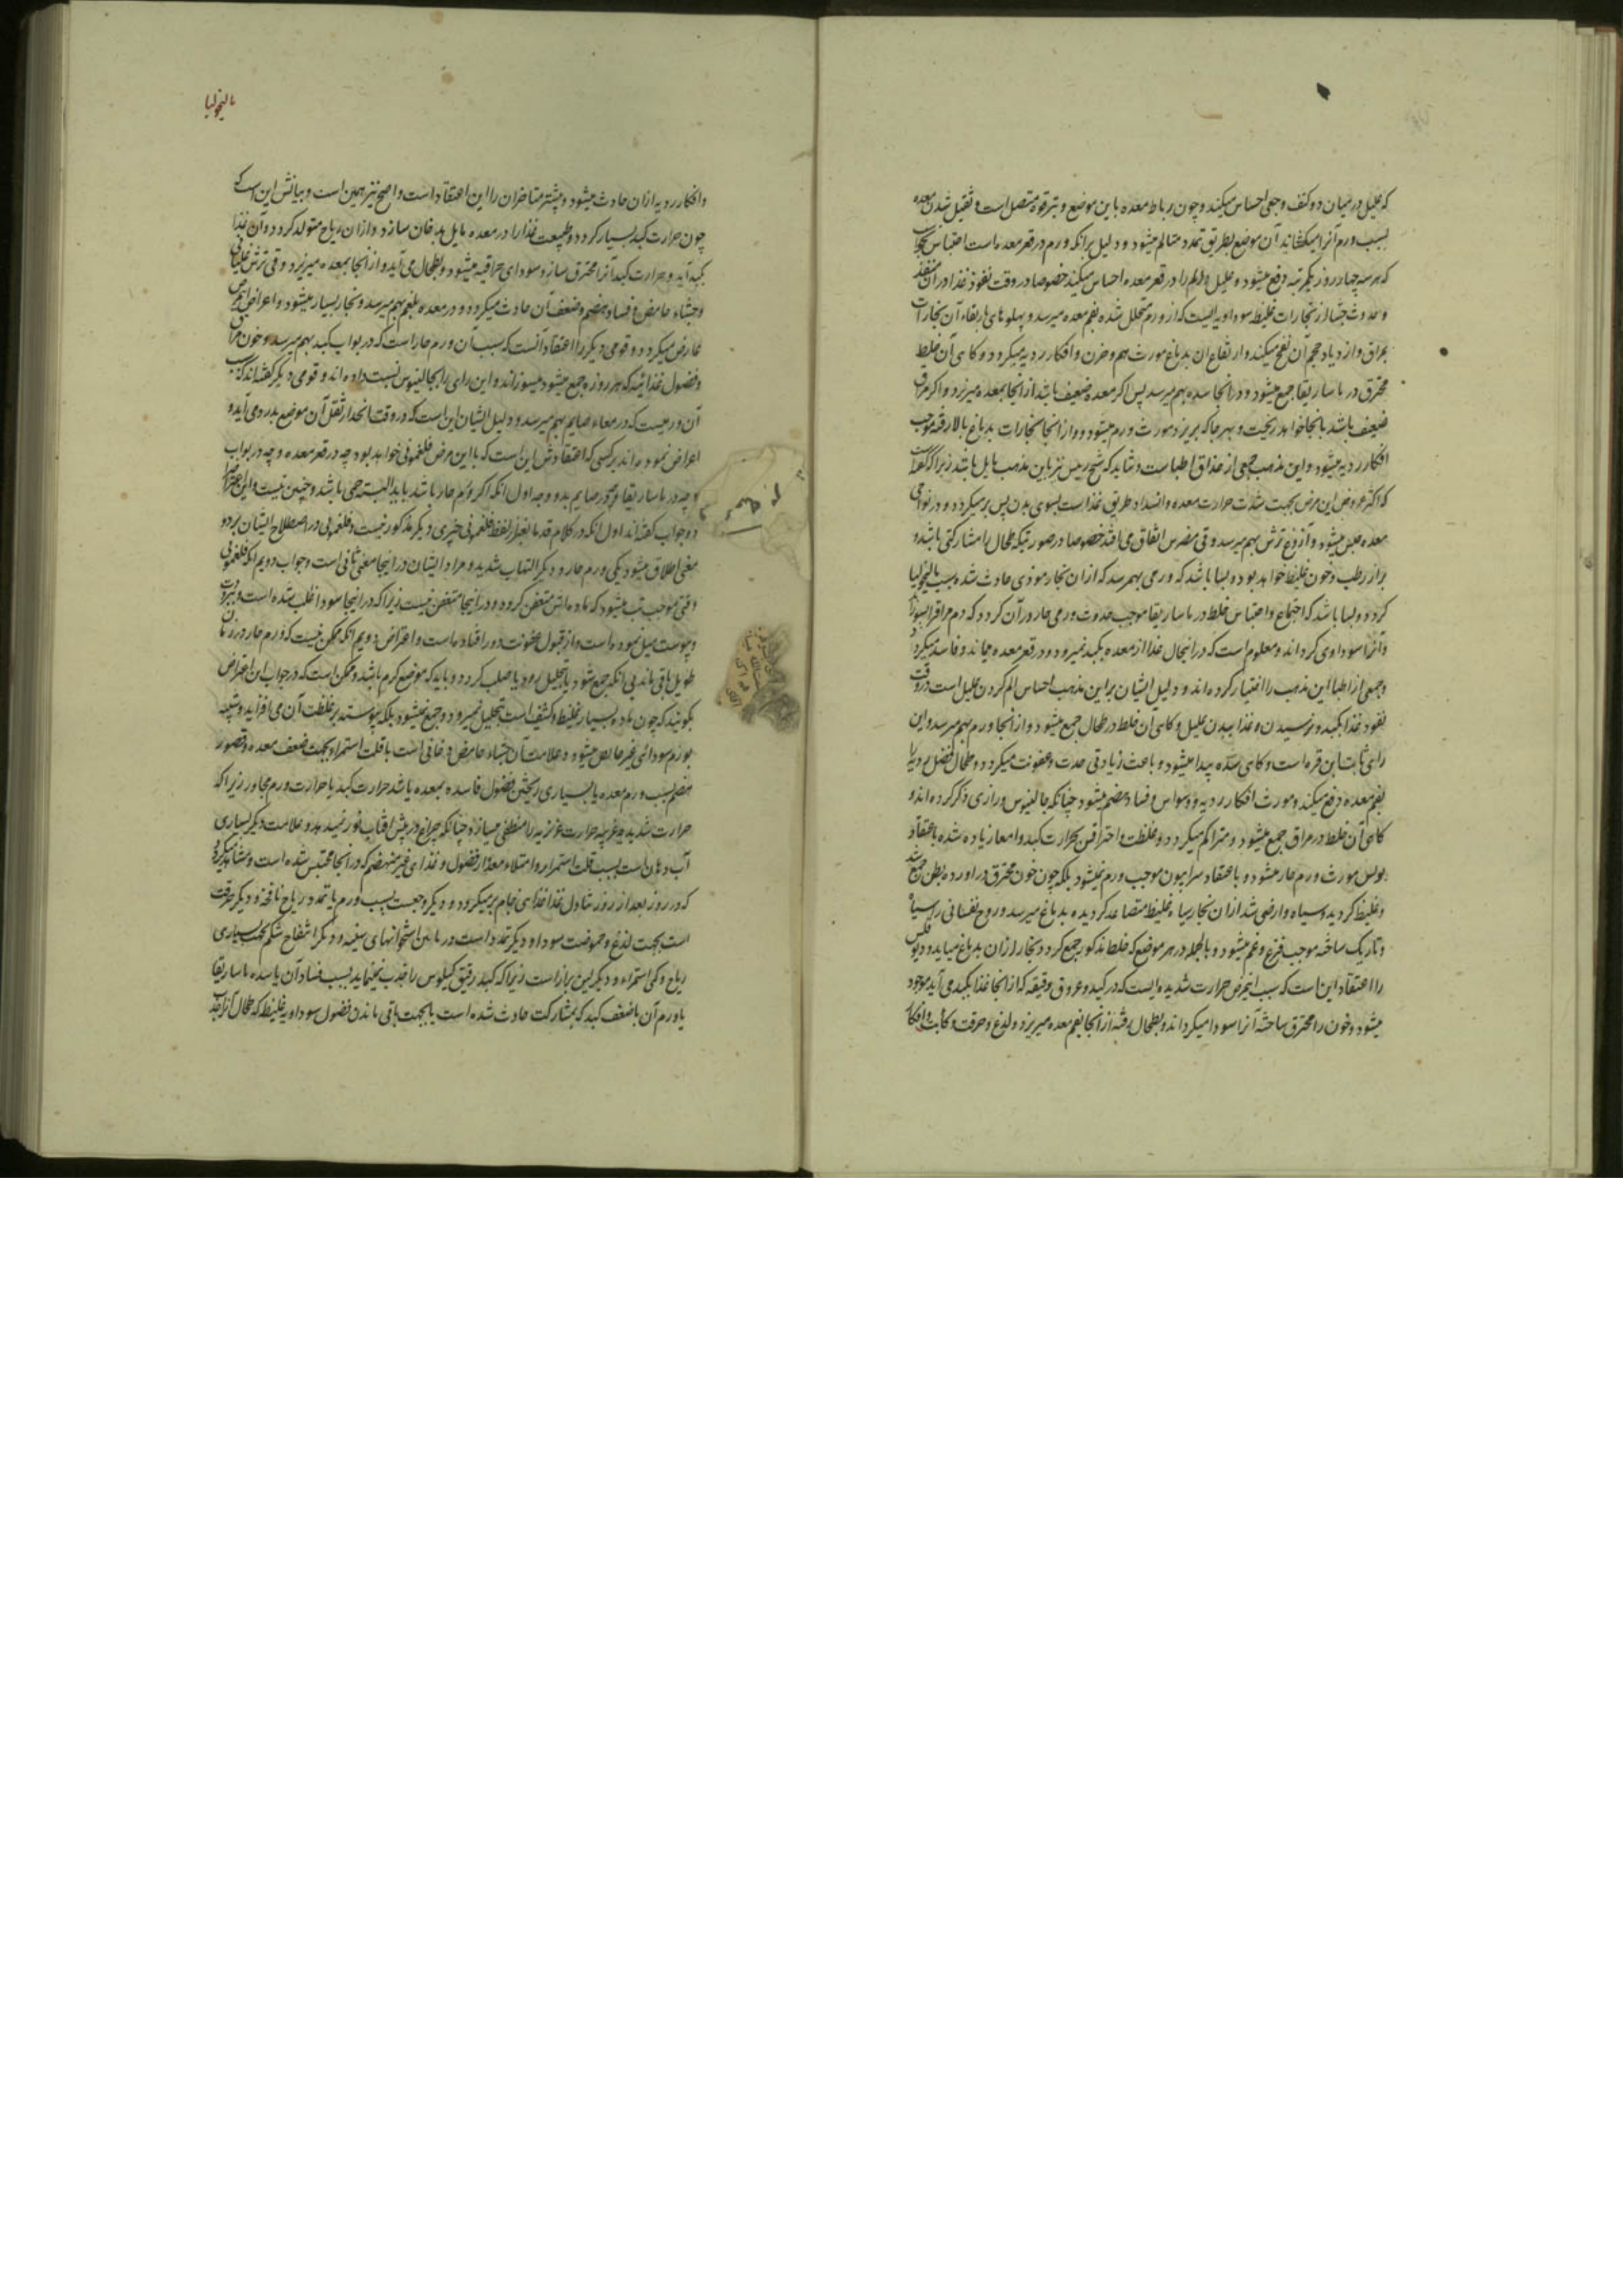 که علیل در میان دو کتف وجعی احساس میکند و چون رباط معده باین موضع و بترقوه متصل است و ثقیل شدن معده
بسبب ورم آنرا میکشاند آن موضع بطریق تمدد متالم میشود و دلیل برانکه ورم در قعر معده است احتباس
که هر سه چهار روز یکمرتبه دفع میشود و علیل الم را در قعر معده احساس میکند خصوصا در وقت نفوذ غذا در آن منفذ
و حدوث جشا از بخارات غلیظ سوداویه ایست که از ورم متحلل شده بفم معده میرسد و پهلوهای بارتقاء آن بخارات
بمراق و ازدیاد حجم آن نفخ میکند و ارتفاع ان بدماغ مورث هم و حزن و افکار ردیه میکردد و کاهی آن خلط
محترق در ماساریقا جمع میشود و در انجا سده بهم میرسد پس اکر معده ضعیف باشد از انجا بمعده میریزد و اکر مراق
ضعیف باشد بانجا خواهد ریخت و بهر جا که بریزد مورث ورم میشود و از انجا بخارات بدماغ بالا رفته موجب
افکار ردیه میشود و این مذهب جمعی از حذاق اطباست و شاید که شیخ رییس نیز باین مذهب مایل باشد زیرا که کفته
که اکثر عروض این مرض بجهت شدت حرارت معده و انسداد طریق غذاست بسوی بدن پس برمیکردد و در نواحی
معده حبس میشود و آروغ ترش بهم میرسد و قی مضرس اتفاق می افتد خصوصا در صورتیکه طحال را مشارکتی باشد و
براز رطب و خون غلیظ خواهد بود و بسا باشد که ورمی بهمرسد که از ان بخار موذی حادث شده سبب مالیخولیا
کردد و بسا باشد که اجتماع و احتباس خلط در ماساریقا موجب حدوث ورمی حار در آن کردد که دم مراق را بسوزاند
و آنرا سوداوی کرداند و معلوم است که در اینحال غذا از معده بکبد نمیرود و در قعر معده میماند و فاسد میکردد
و جمعی از اطبا این مذهب را اختیار کرده اند و دلیل ایشان بر این مذهب احساس الم کردن علیل است در وقت
نفوذ غذا بکبد و نرسیدن و غذا ببدن علیل و کاهی آن خلط در طحال جمع میشود و از انجا ورم بهم میرسد و این
رای ثابت ابن قره است و کاهی سده پیدا میشود و باعث زیادتی حدت و عفونت میکردد و طحال فضل ردی را
بفم معده دفع میکند و مورث افکار ردیه و وسواس و فساد هضم میشود چنانکه جالینوس و رازی ذکر کرده اند و
کاهی آن خلط در مراق جمع میشود و متراکم میکردد و غلظت و احتراقش بحرارت کبد و امعا زیاده شده باعتقاد
بولس مورث ورم حار میشود و باعتقاد سرابیون موجب ورم نمیشود بلکه چون خون محترق در اورده بطن جمع شد
و غلیظ کردید و سیاه و ارضی شد از ان بخار سیاه غلیظ متصاعد کردیده بدماغ میرسد و روح نفسانی را سیاه
و تاریک ساخته موجب فزع و غم میشود و بالجمله در هر موضع که خلط مذکور جمع کردد بخار از ان بدماغ میاید و دیوقلس
را اعتقاد این است که سبب اینمرض حرارت شدیده ایست که در کبد و عروق دقیقه که از انجا غذا بکبد می آید موجود
میشود و خون را محترق ساخته آنرا سودا میکرداند و بطحال رفته از انجا بفم معده میریزد و لذع و حرقت و کابت و افکار
مالیخولیا
و افکار ردیه از ان حادث میشود و بیشتر متاخران را این اعتقاد است و اصح نیز همین است و بیانش این است که
چون حرارت کبد بسیار کردد و طبیعت غذا را در معده مایل بدخان سازد و از ان ریاح متولد کردد و آن غذا
بکبد آید و حرارت کبد آنرا محترق سازد سودای حراقیه میشود و بطحال می آید و از انجا بمعده میریزد و قی ترش
و جشاء حامض و فساد هضم و ضعف آن حادث میکردد و در معده بلغم بهم میرسد و بخار بسیار میشود و اعراض
عارض میکردد و قومی دیکر را اعتقاد آنست که سبب آن ورم حار است که در بواب کبد بهم میرسد و خون مراق
و فضول غذائیه که هر روزه جمع میشود میسوزاند و این رای را بجالینوس نسبت داده اند و قومی دیکر کفته اند که سبب
آن ورمیست که در معاء صایم بهم میرسد و دلیل ایشان این است که در وقت انحدار ثفل آن موضع بدرد می آید و
اعراض نموده اند بر کسی که اعتقادش این است که با این مرض فلغمونی خواهد بود چه در قعر معده و چه در بواب
و چه در ماساریقا و چه در صایم بدو وجه اول انکه اکر ورم حار باشد باید البته حمی باشد و چنین نیست و این اعتراض را
دو جواب کفته اند اول انکه در کلام قدما بغیر از لفظ فلغمونی چیزی دیکر مذکور نیست و فلغمونی در اصطلاح ایشان بر دو
معنی اطلاق میشود یکی ورم حار و دیکر التهاب شدید و مراد ایشان در اینجا معنی ثانی است و جواب دویم انکه فلغمونی
وقتی موجب تب میشود که ماده اش متعفن کردد و در اینجا متعفن نیست زیرا که در انجا سودا غلب شده است و ببرودت
و یبوست میل نموده است و از قبول عفونت دور افتاده است و اعتراض دویم انکه ممکن نیست که ورم حار در زمان
طویل باقی ماند بی انکه جمع شود یا تحلیل رود یا صلب کردد و باید که موضع کرم باشد و ممکن است که در جواب این اعتراض
بکویند که چون ماده بسیار غلیظ و کثیف است تحلیل نمیرود و جمع نمیشود بلکه پیوسته بر غلظت آن می افزاید و شبیه
بورم سودائی غیر خالص میشود و علامت آن جشاء حامض دخانی است با قلت استمرا و بجهت ضعف معده و قصور
هضم بسبب ورم معده یا بسیاری ریختن فضول فاسده بمعده یا شد حرارت کبد یا حرارت ورم مجاور زیرا که
حرارت شدیده غریبه حرارت غزیزیه را منطفی میسازد چنانکه چراغ در پیش افتاب نور نمیدهد و علامت دیکر بسیاری
آب دهان است بسبب قلت استمرا و امتلاء معده از فضول و غذای غیر منهضم که در انجا محتبس شده است و مشاهده میکردد
که در روز بعد از روز تناول غذا غذای خام برمیکردد و دیکر وجعست بسبب ورم یا تمدد ریاح نافخه و دیکر حرقت
است بجهت لذع و حموضت سودا و دیکر تمدد است در مابین استخوانهای سینه و دیکر انتفاخ شکم بجهت بسیاری
ریاح و کمی استمراء و دیکر لین براز است زیرا که کبد رقیق کیلوس را جذب نمینماید بسبب فساد آن یا سده ماساریقا
یا ورم آن یا ضعف کبد که بمشارکت حادث شده است یا بجهت باقی ماندن فضول سوداویه غلیظ که طحال آنرا جذب